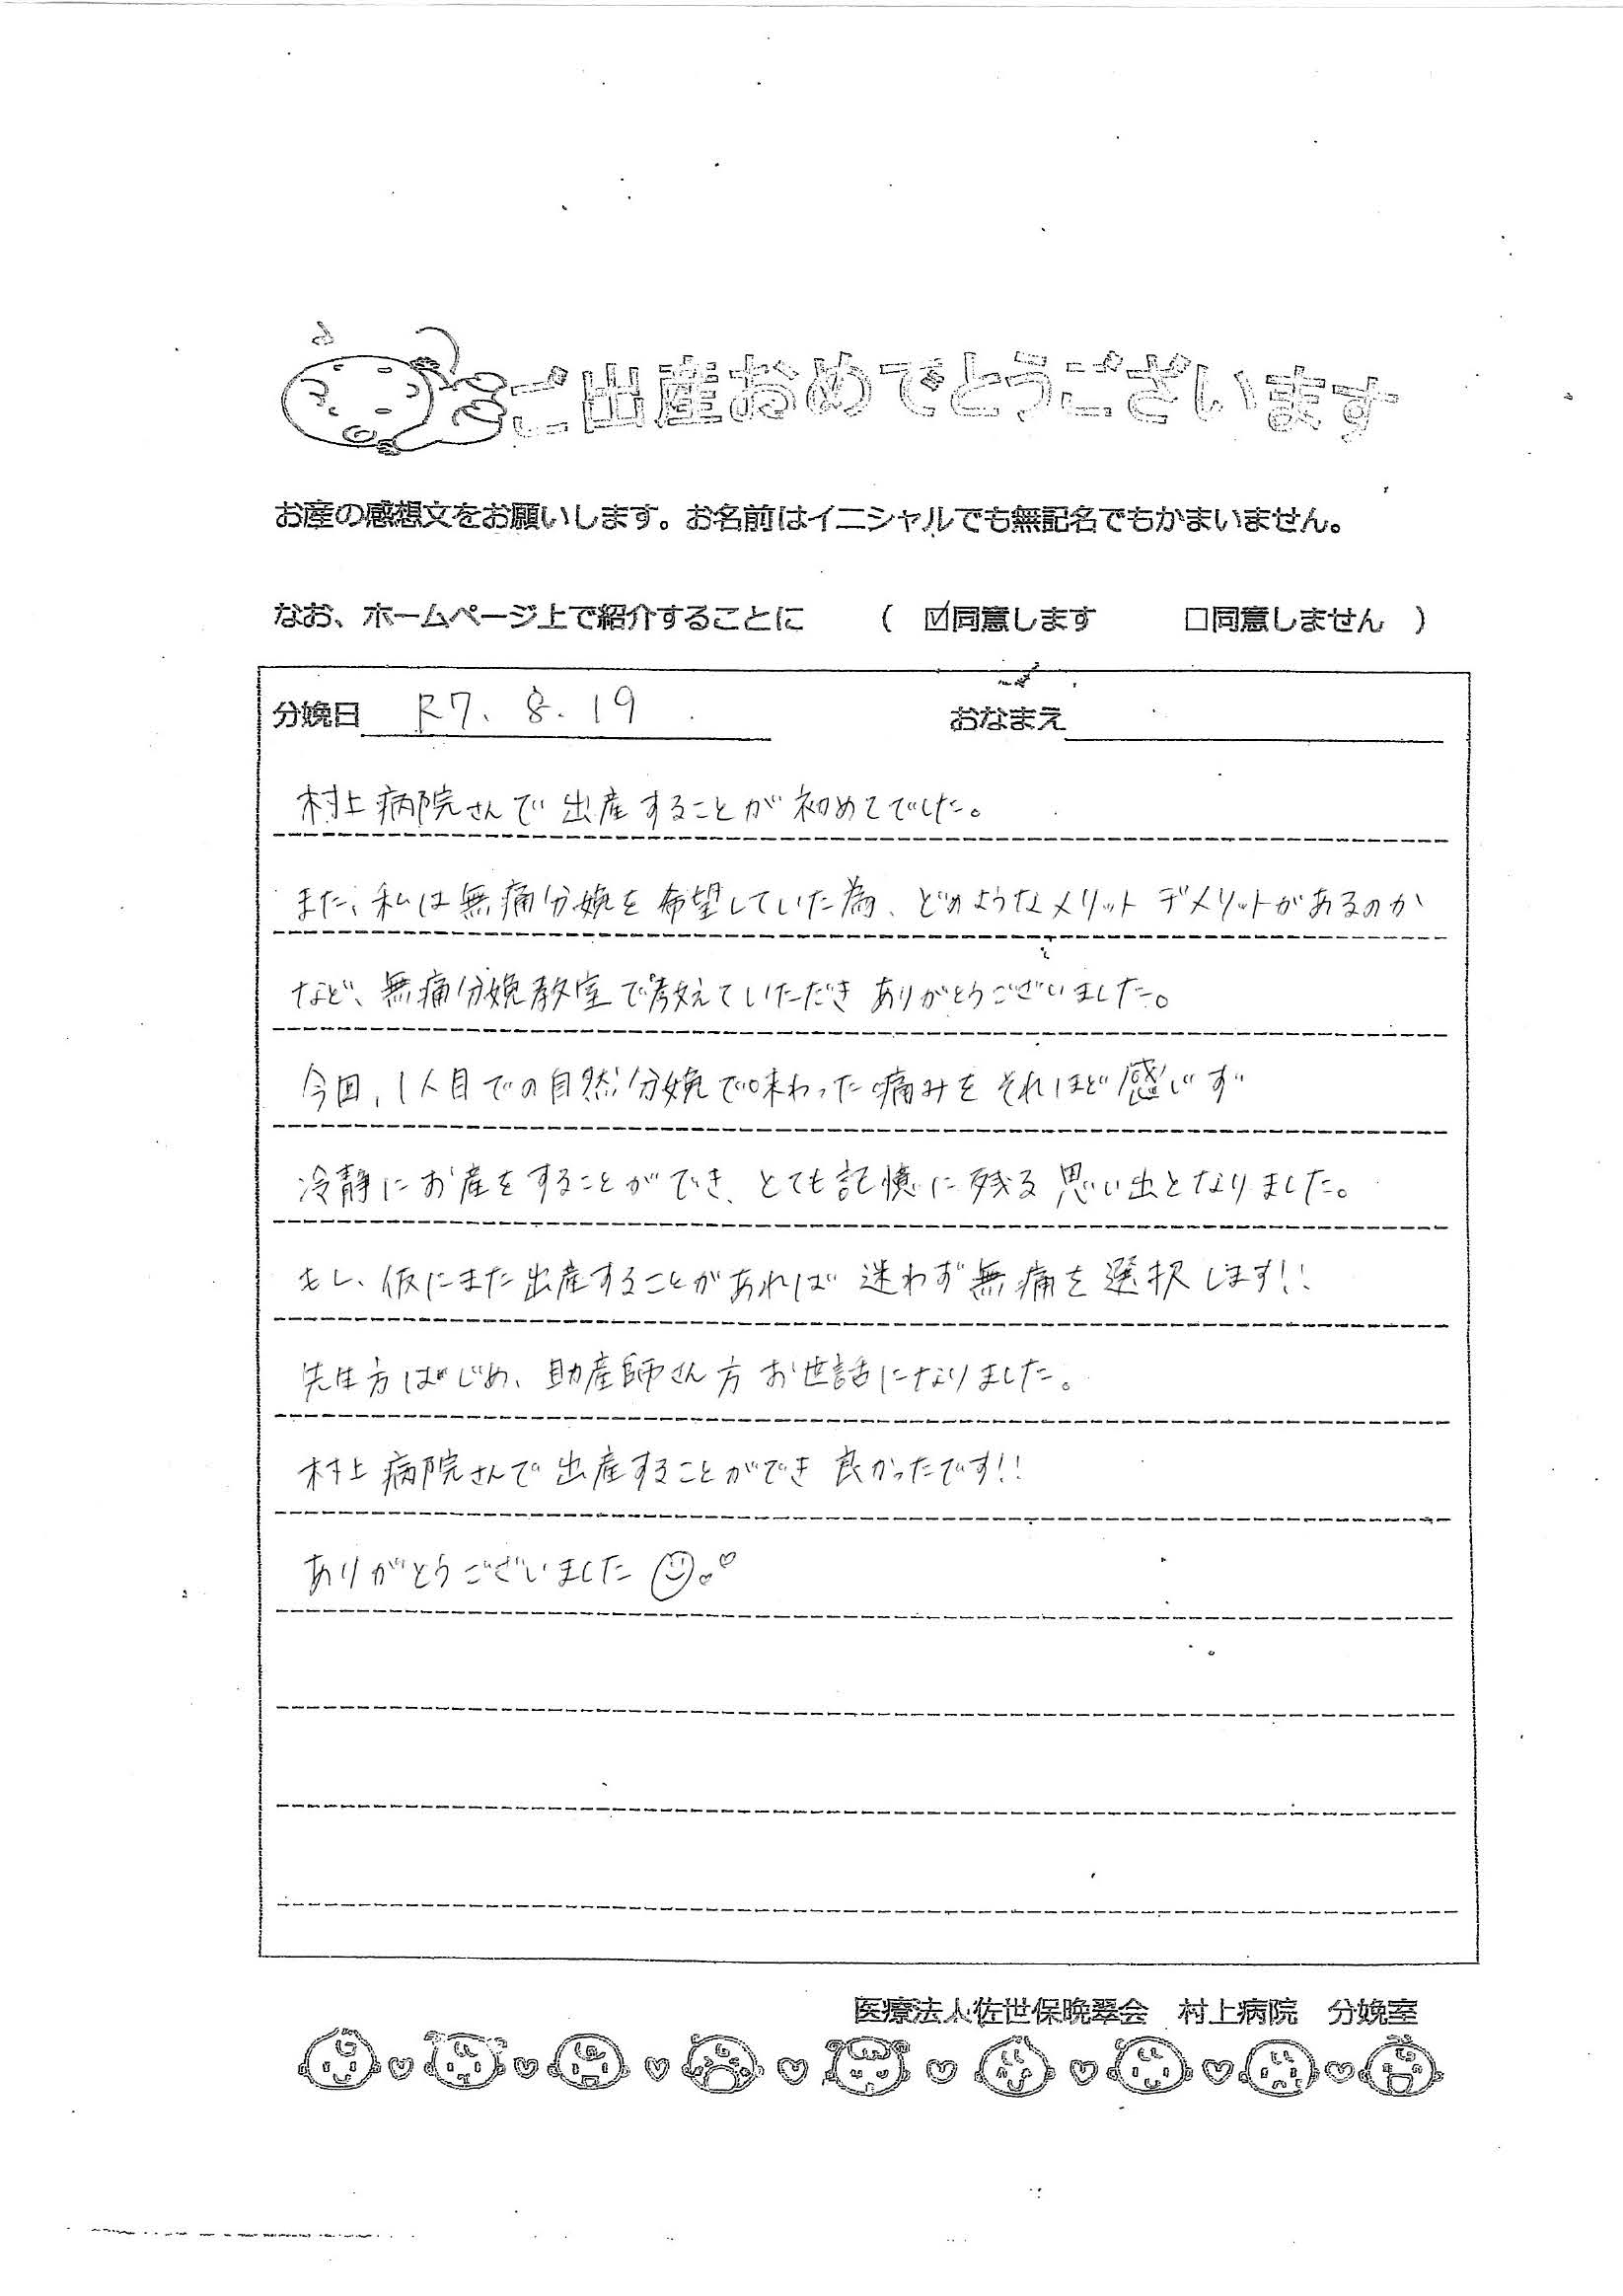 ご出産おめでとうございます
お産の感想文をお願いします。お名前はイニシャルでも無記名でもかまいません。
なお、ホームページ上で紹介することに ( ☑同意します □同意しません )
分娩日 R7. 8. 19 おなまえ
村上病院さんで出産することが初めてでした。
また、私は無痛分娩を希望していた為、どのようなメリット デメリットがあるのか
など、無痛分娩教室で教えていただきありがとうございました。
今回、1人目での自然分娩で味わった痛みをそれほど感じず
冷静にお産をすることができ、とても記憶に残る思い出となりました。
もし、仮にまた出産することがあれば 迷わず無痛を選択します!!
先生方はじめ、助産師さん方お世話になりました。
村上病院さんで出産することができ良かったです!!
ありがとうございました
医療法人佐世保晩翠会 村上病院 分娩室